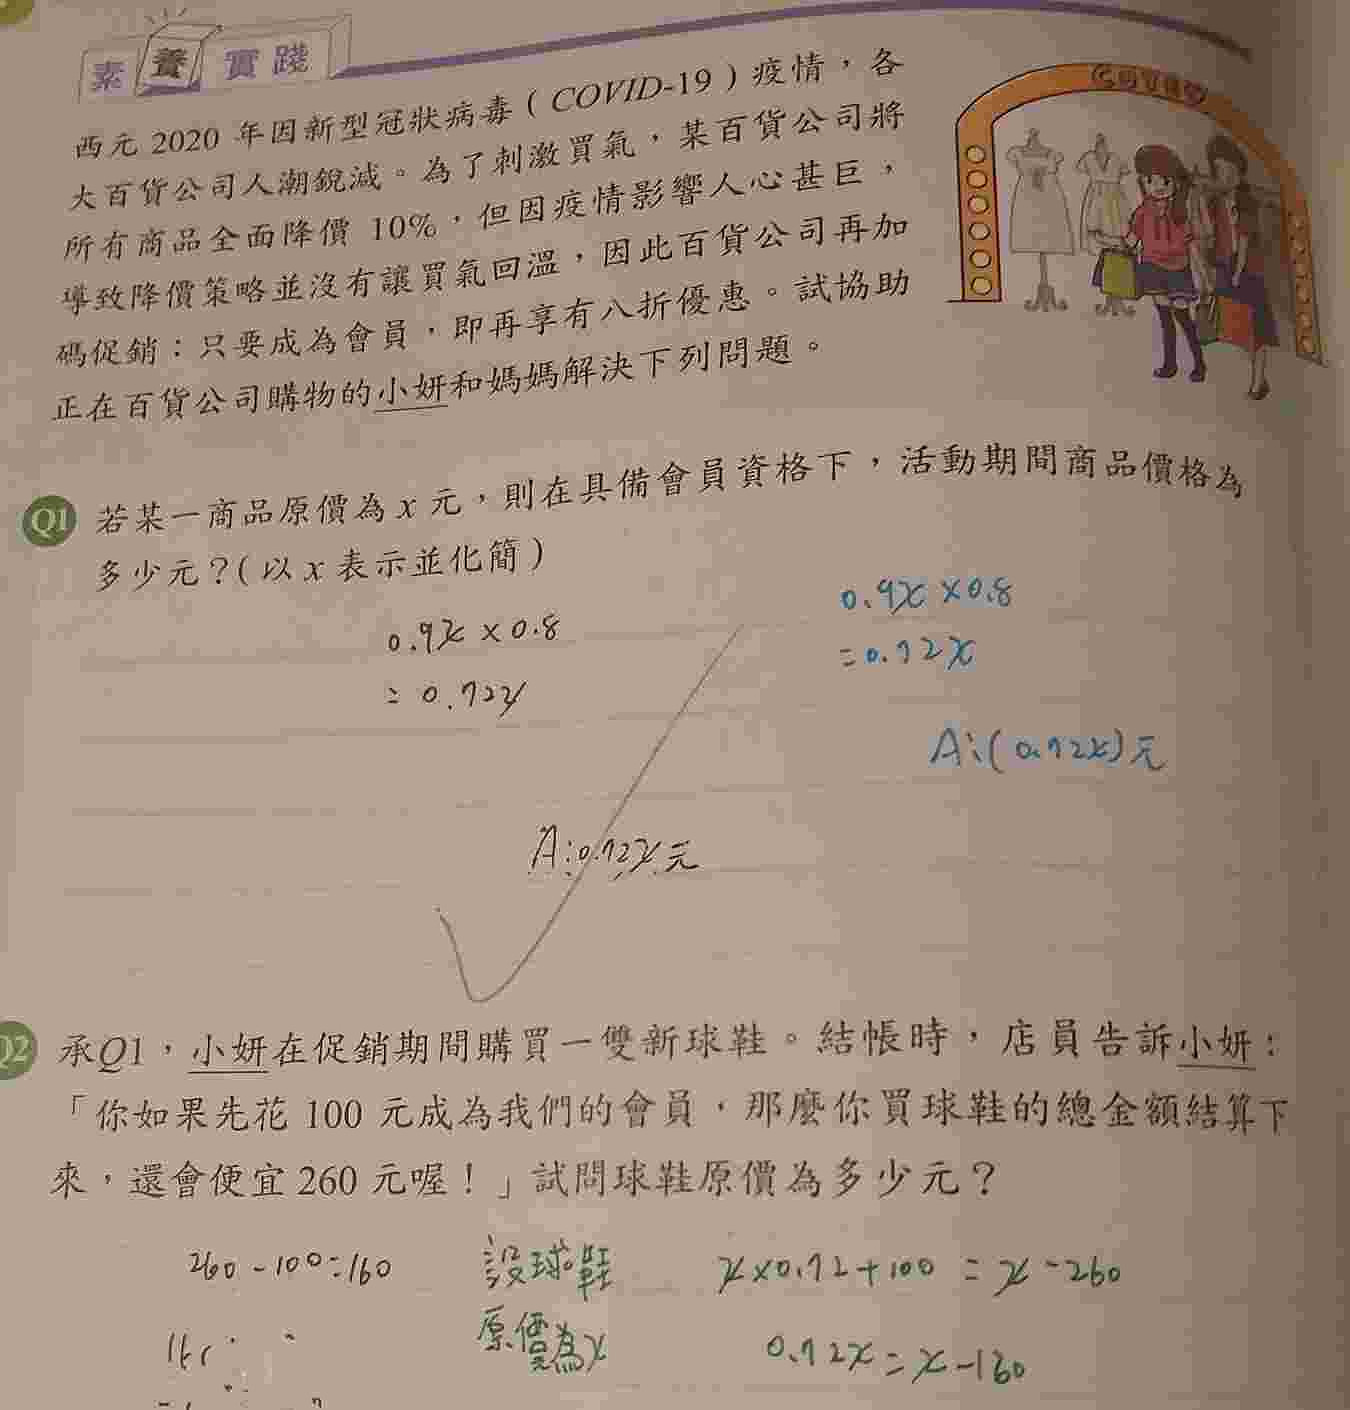 素養實踐
西元 2020 年因新型冠狀病毒（COVID-19）疫情，各
大百貨公司人潮銳減。為了刺激買氣，某百貨公司將
所有商品全面降價 10%，但因疫情影響人心甚巨，
導致降價策略並沒有讓買氣回溫，因此百貨公司再加
碼促銷：只要成為會員，即再享有八折優惠。試協助
正在百貨公司購物的小妍和媽媽解決下列問題。
Q1 若某一商品原價為 x 元，則在具備會員資格下，活動期間商品價格為
多少元？(以 x 表示並化簡)
0.9x×0.8
=0.72x
A:0.72x元
0.9x×0.8
=0.72x
A:(0.72x)元
Q2 承Q1，小妍在促銷期間購買一雙新球鞋。結帳時，店員告訴小妍：
「你如果先花 100 元成為我們的會員，那麼你買球鞋的總金額結算下
來，還會便宜 260 元喔！」試問球鞋原價為多少元？
260-100=160
設球鞋
原價為x
x×0.72+100=x-260
0.72x=x-